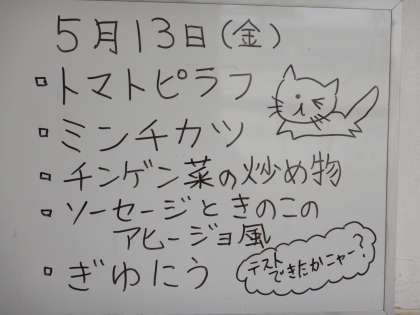 5月13日(金)
□トマトピラフ
□ミンチカツ
□チンゲン菜の炒め物
□ソーセージときのこの
アヒージョ風
□ぎゅにう
テスト
できたかニャー?